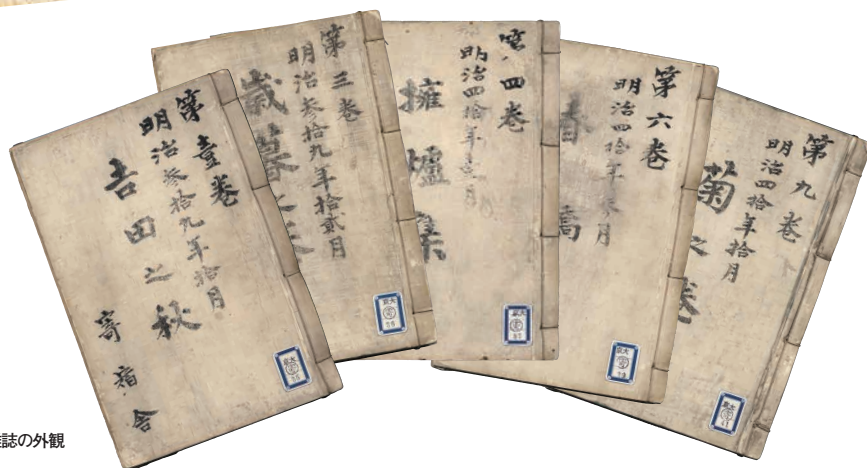 第壹巻
明治参拾九年拾月
吉田之秋
寄宿舎
第三巻
明治参拾九年拾貳月
歳暮之巻
第四巻
明治四拾年壹月
擁爐集
第六巻
明治四拾年参月
春
第九巻
明治四拾年拾月
菊之巻
誌の外観